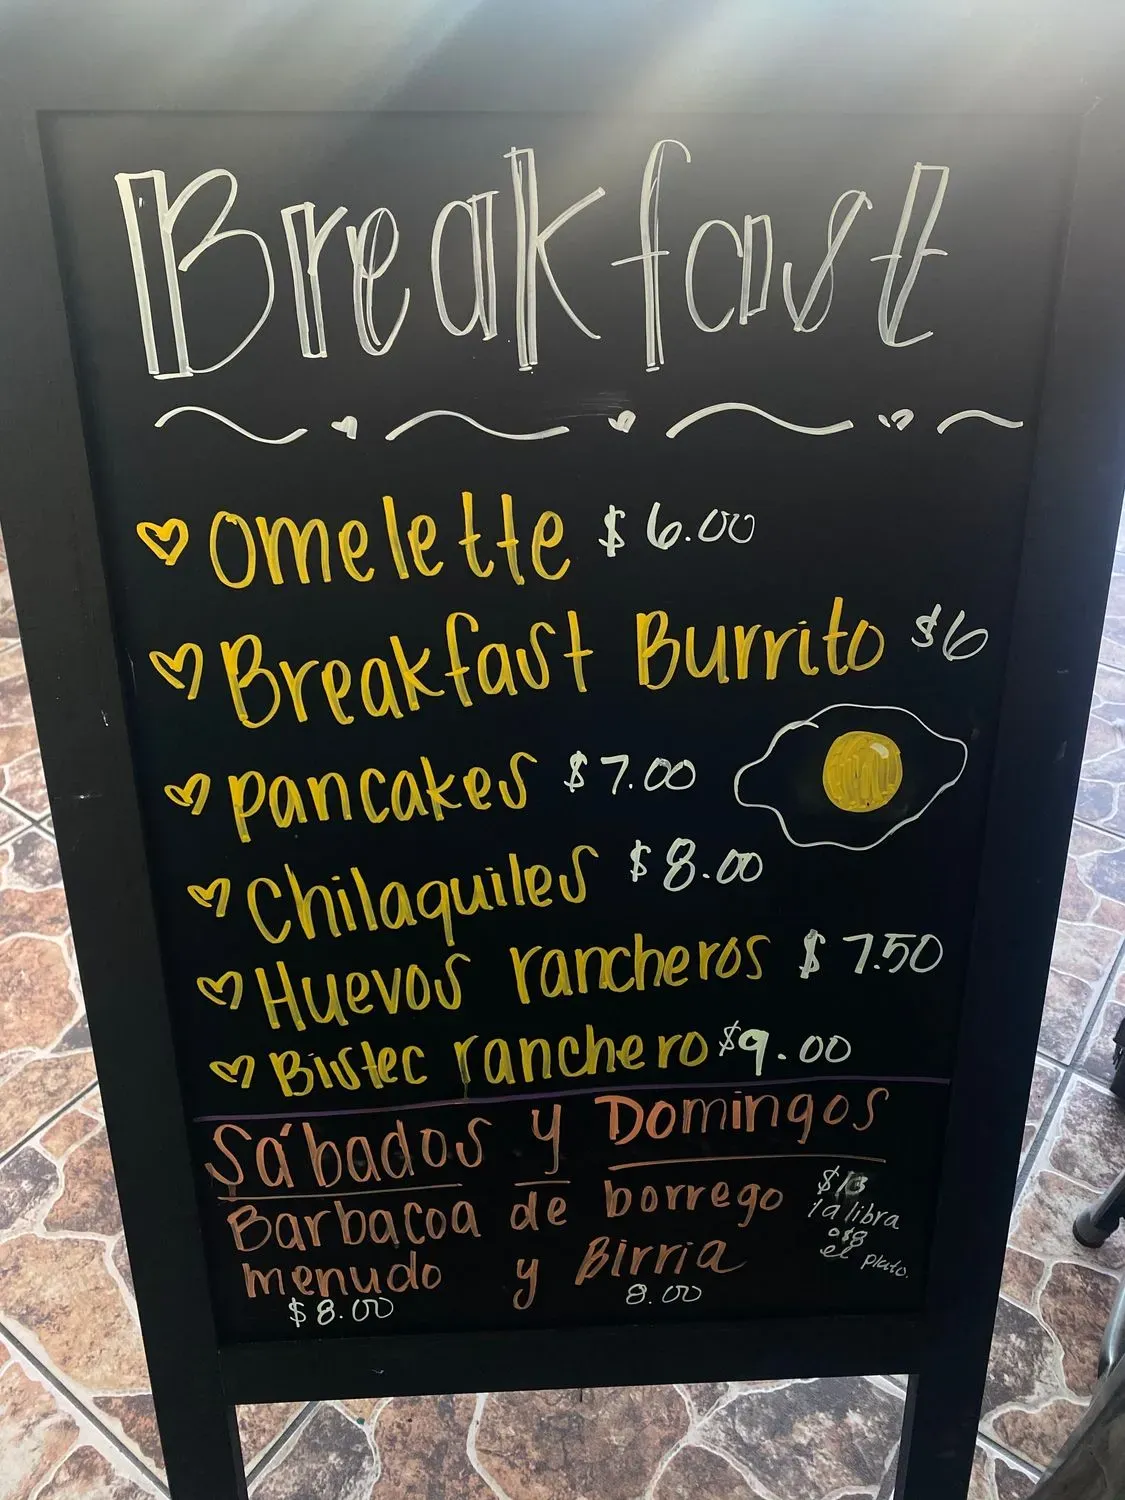 Breakfast
Omelette $6.00
Breakfast Burrito $6
pancakes $7.00
Chilaquiles $8.00
Huevos rancheros $7.50
Bistec ranchero $9.00
Sábados y Domingos
Barbacoa de borrego
menudo y Birria
$8.00 8.00
$13
la libra
o $8
el plato.